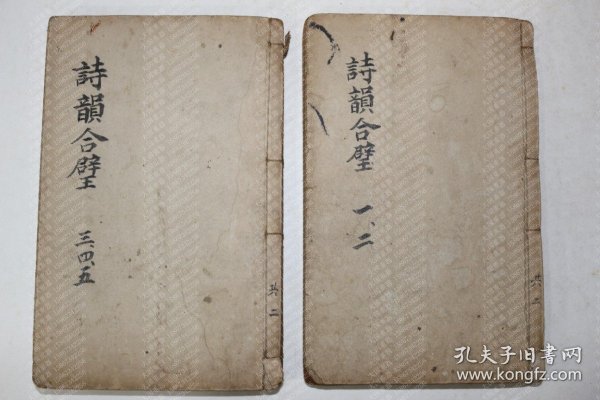 詩韻合璧
三、四、五
共二
詩韻合璧
一、二
共二
孔夫子旧书网
www.kongfz.com